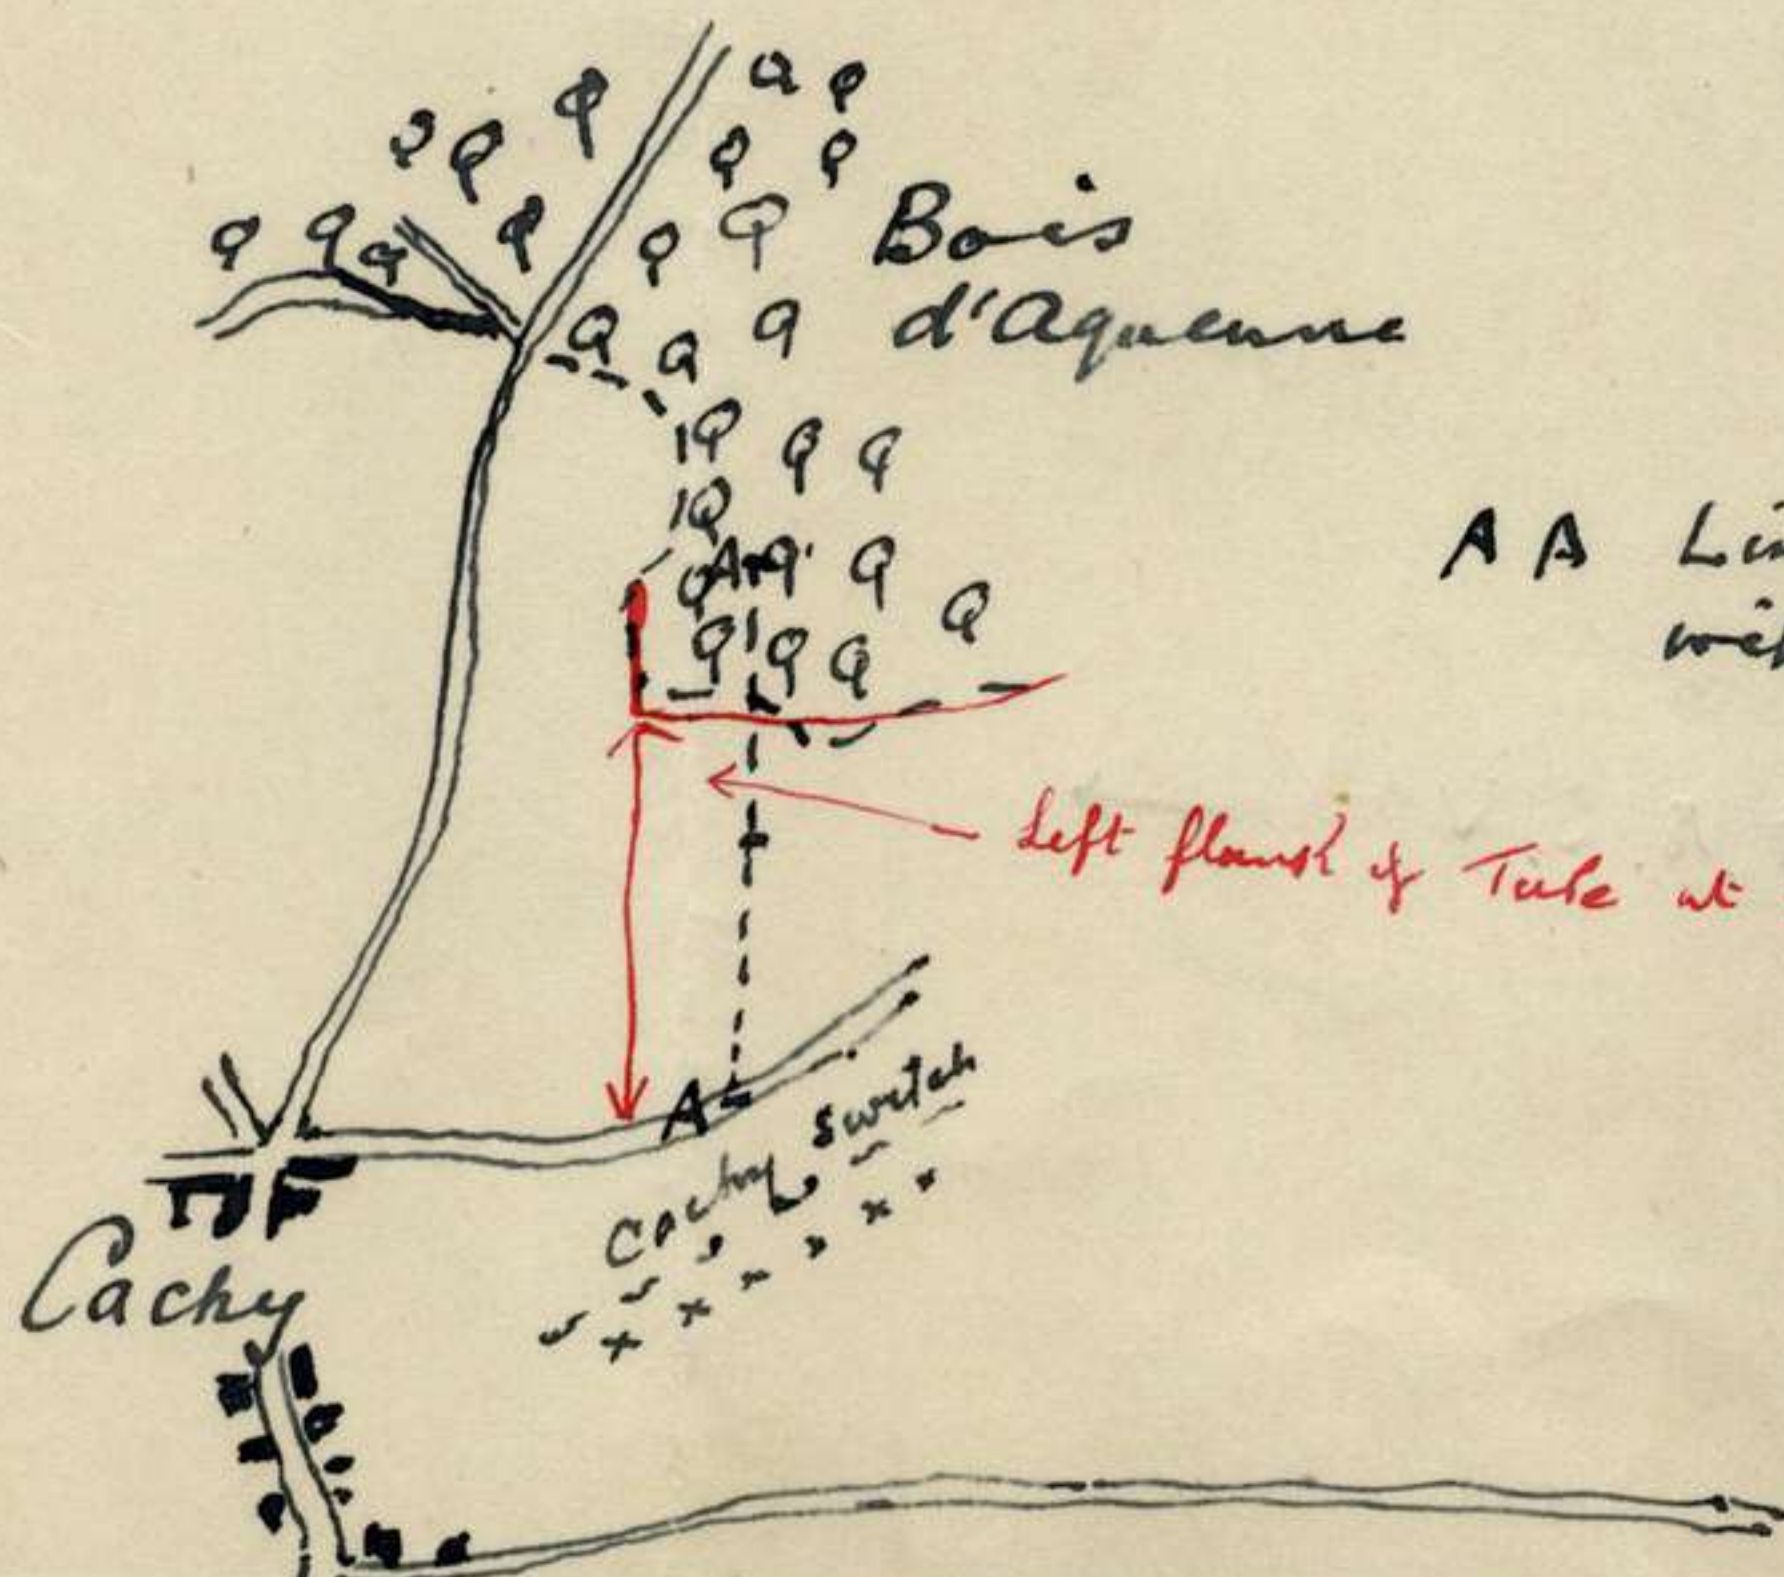 Bois
d'Aquenne
A
A A Lin
wit
Left flank of Tube at
A
Cachy Switch
Cachy